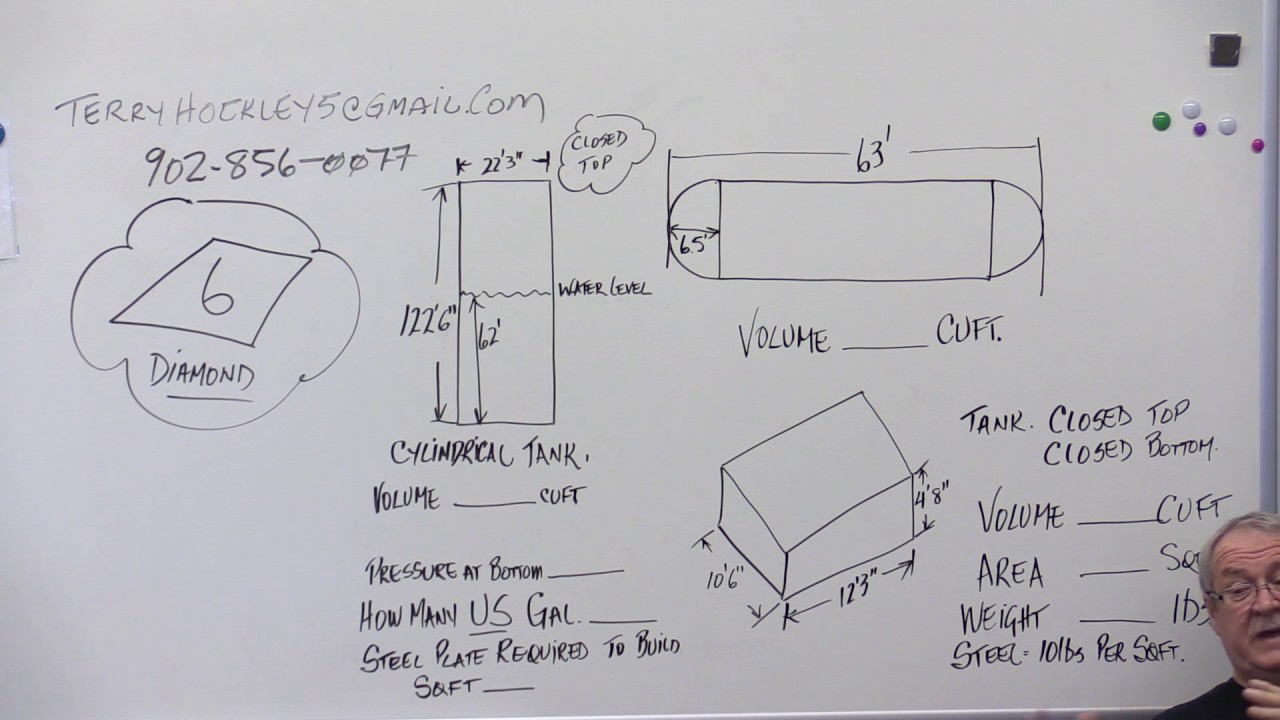 TERRYHOCKLEY5@GMAIL.COM
902-856-0077
6
DIAMOND
22'3"
CLOSED
TOP
122'6"
WATER LEVEL
62'
CYLINDRICAL TANK.
VOLUME ______ CUFT
PRESSURE AT BOTTOM ______
HOW MANY US GAL. ______
STEEL PLATE REQUIRED TO BUILD
SQFT ____
63'
6.5'
VOLUME ______ CUFT.
4'8"
10'6"
12'3"
TANK. CLOSED TOP
CLOSED BOTTOM.
VOLUME ______ CUFT
AREA ______
WEIGHT ______ lbs
STEEL = 10lbs PER SQFT.